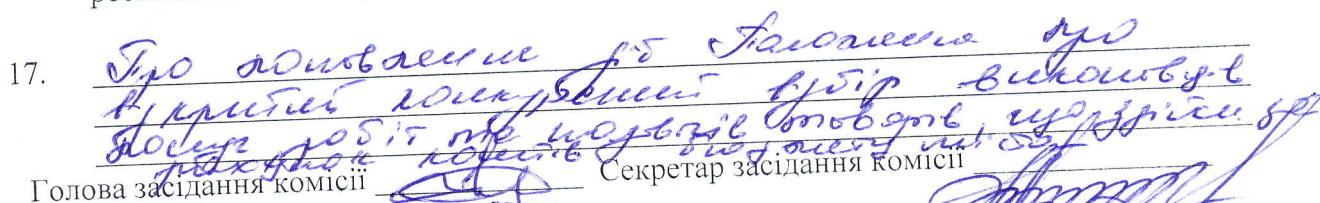 17. Про поновлення дії Положення про
відкритий конкурсний відбір виконавців
послуг робіт та товарів, що здійсн за
рахунок коштів бюджету міста
Голова засідання комісії Секретар засідання комісії